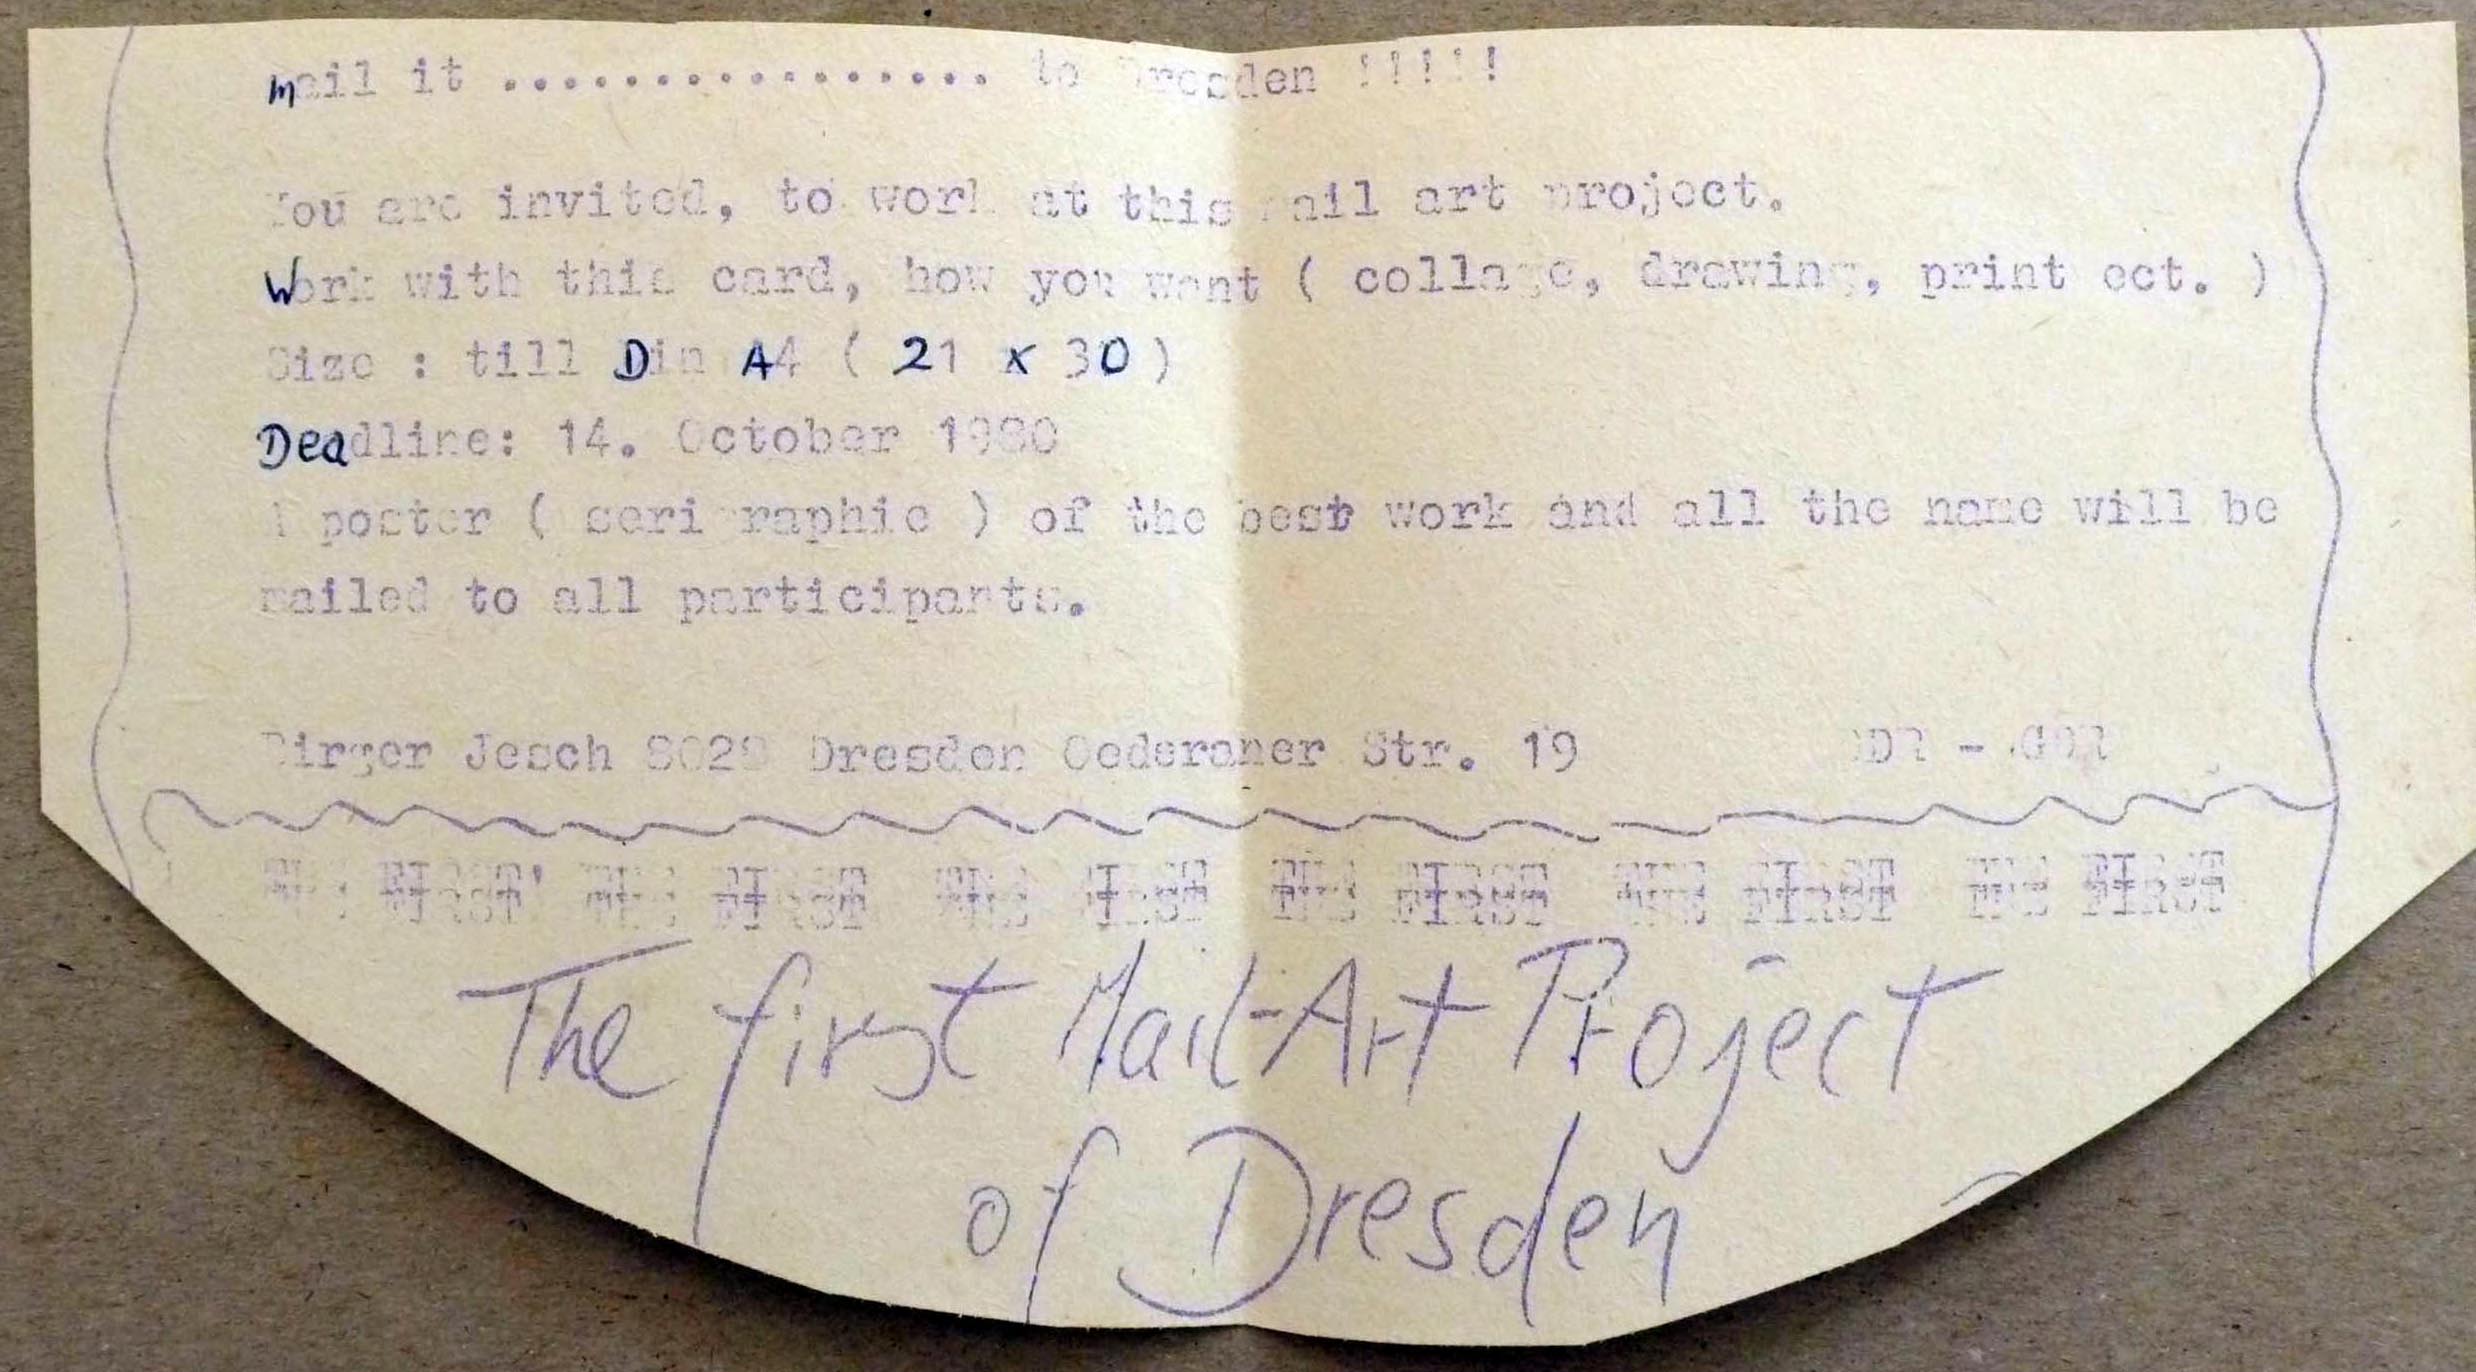 mail it ................. to Dresden !!!!!
You are invited, to work at this mail art project.
Work with this card, how you want ( collage, drawing, print ect. )
Size : till Din A4 ( 21 x 30 )
Deadline: 14. October 1980
A poster ( serigraphic ) of the best work and all the name will be
mailed to all participants.
Birger Jesch 8029 Dresden Oederaner Str. 19 DDR - GDR
THE FIRST' THE FIRST THE FIRST THE FIRST THE FIRST THE FIRST
The first Mail-Art Project
of Dresden